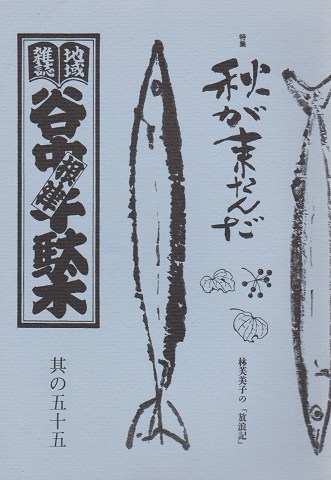 特集
秋が来たんだ
林芙美子の『放浪記』
地域
雑誌
谷中
根津
千駄木
其の五十五